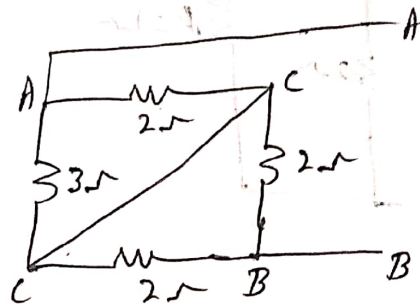 A
A
C
2Ω
3Ω
2Ω
C
2Ω
B
B